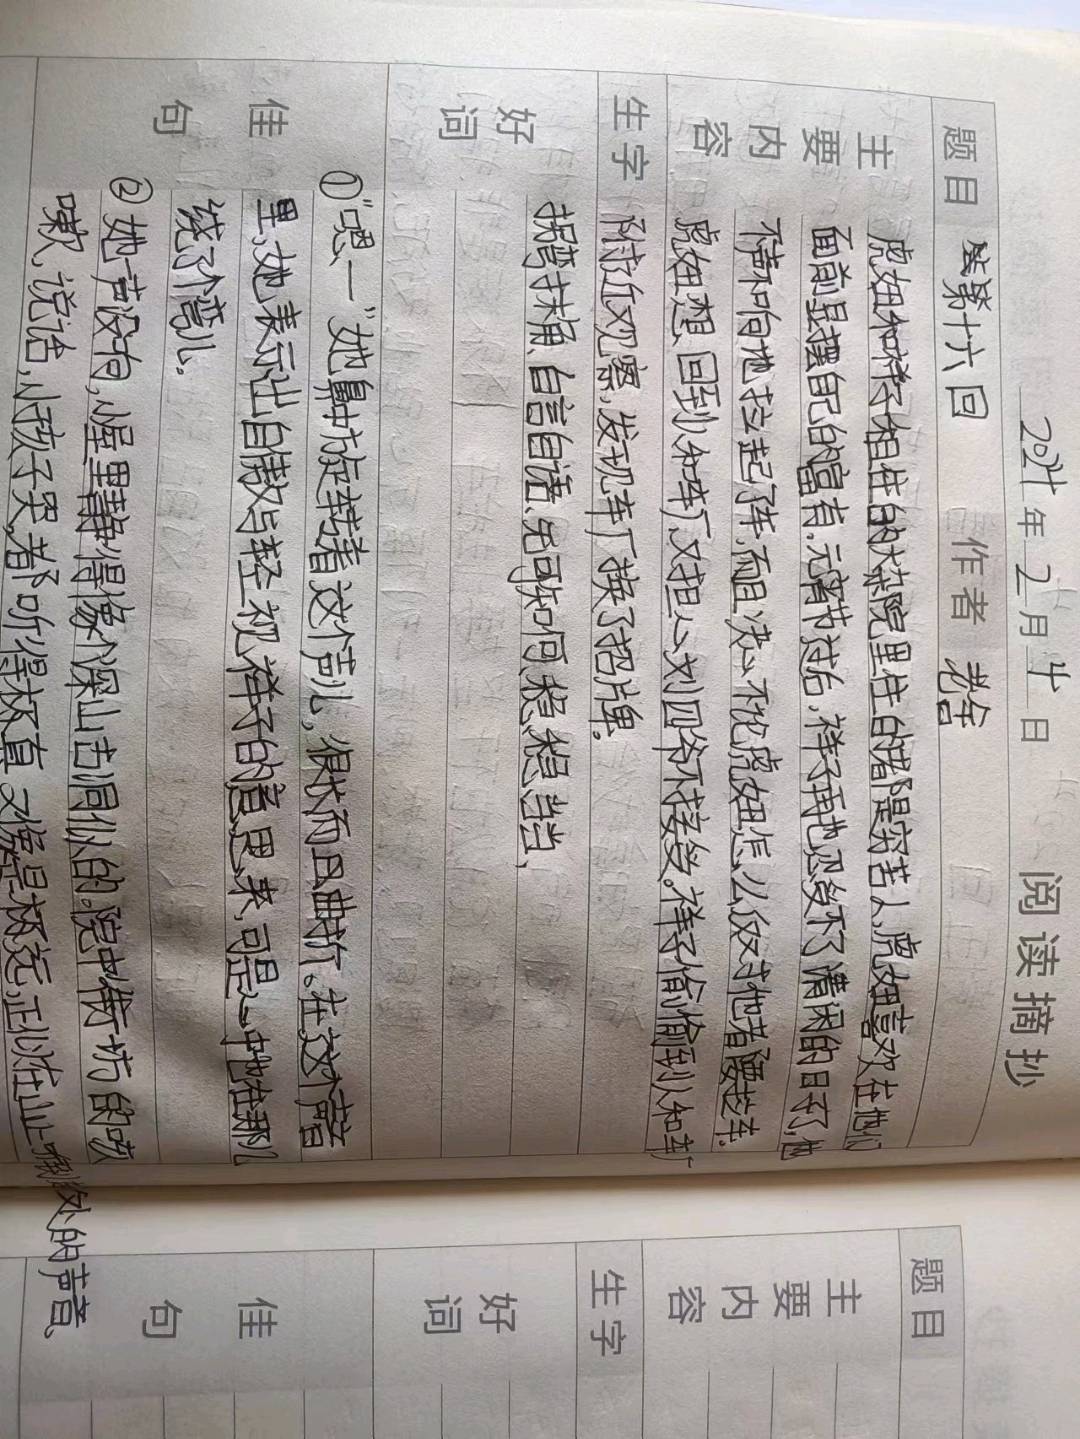 阅读摘抄
2021年2月十日
题目 第十六回 作者 老舍
主要内容
虎妞和祥子租住的大杂院里住的都是穷苦人,虎妞喜欢在他们
面前显摆自己的富有。元宵节过后,祥子再也忍受不了清闲的日子,他
不声不响地拉起了车,而且决心不论虎妞怎么反对他都要拉车。
虎妞想回到人和车厂又担心刘四爷不接受。祥子偷偷到人和车厂
附近观察,发现车厂换了招牌。
生字
好词
拐弯抹角、自言自语、无可如何、稳稳当当、
佳句
①“嗯—”她鼻中旋转着这个声儿,很长而且曲折。在这个声音
里,她表示出自傲与轻视祥子的意思来,可是心中也在那儿
绕了个弯儿。
②她一声没有,小屋里静得像个深山古洞似的。院中街坊的咳
嗽,说话,小孩子哭,都听得极真,又像是极远,正似在山上听到远处的声音。
题目
主要内容
生字
好词
佳句